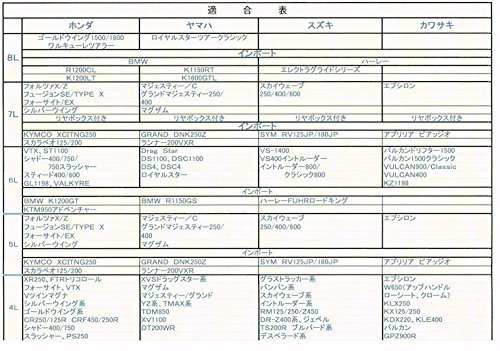 適 合 表
ホンダ ヤマハ スズキ カワサキ
8L
ゴールドウイング1500/1800 ロイヤルスターツアークラシック
ワルキューレツアラー
インポート
BMW ハーレー
R1200CL K1150RT エレクトラグライドシリーズ
K1200LT K1600GTL
7L
フォルツァX/Z マジェスティー/C スカイウェーブ エプシロン
フュージョンSE/TYPE X グランドマジェスティー250/ 250/400/650
フォーサイト/EX 400
シルバーウイング マグザム
リヤボックス付き リヤボックス付き リヤボックス付き
インポート
KYMCO XCITNG250 GRAND DNK250Z SYM RV125JP/180JP アプリリア ピアッジオ
スカラベオ125/200 ランナー200VXR
6L
VTX, ST1100 Drag Star VS-1400 バルカンドリフター1500
シャドー400/750/ DS1100, DSC1100 VS400イントルーダー バルカン1500クラシック
750スラッシャー DS4, DSC4 イントルーダー800/ VULCAN900/Classic
スティード400/600 ロイヤルスター クラシック800 VULCAN400
GL1198, VALKYRE KZ1198
インポート
BMW K1200GT BMW R1150GS ハーレーFUHRロードキング
KTM950アドベンチャー
5L
フォルツァX/Z マジェスティー/C スカイウェーブ エプシロン
フュージョンSE/TYPE X グランドマジェスティー250/ 250/400/650
フォーサイト/EX 400
シルバーウイング マグザム
インポート
KYMCO XCITNG250 GRAND DNK250Z SYM RV125JP/180JP アプリリア ピアッジオ
スカラベオ125/200 ランナー200VXR
4L
XR250, FTRトリコロール XVSドラッグスター系 グラストラッカー系 エプシロン
フォーサイト, VTX マグザム バンバン系 W650(アップハンドル
Vツインマグナ マジェスティー/グランド スカイウェブ系 ローシート, クローム)
シルバーウイング系 YZ系, TMAX系 イントルーダー系 KLX250
ゴールドウイング系 TDM850 RM125/250/Z450 KX125/250
CR250/125R CRF450/250R XV1100 DR-Z400系, ジェベル KDX220, KLE400
シャドー400/750 DT200WR TS200R ブルバード系 バルカン
スラッシャー, PS250 デスペラード系 GPZ900R